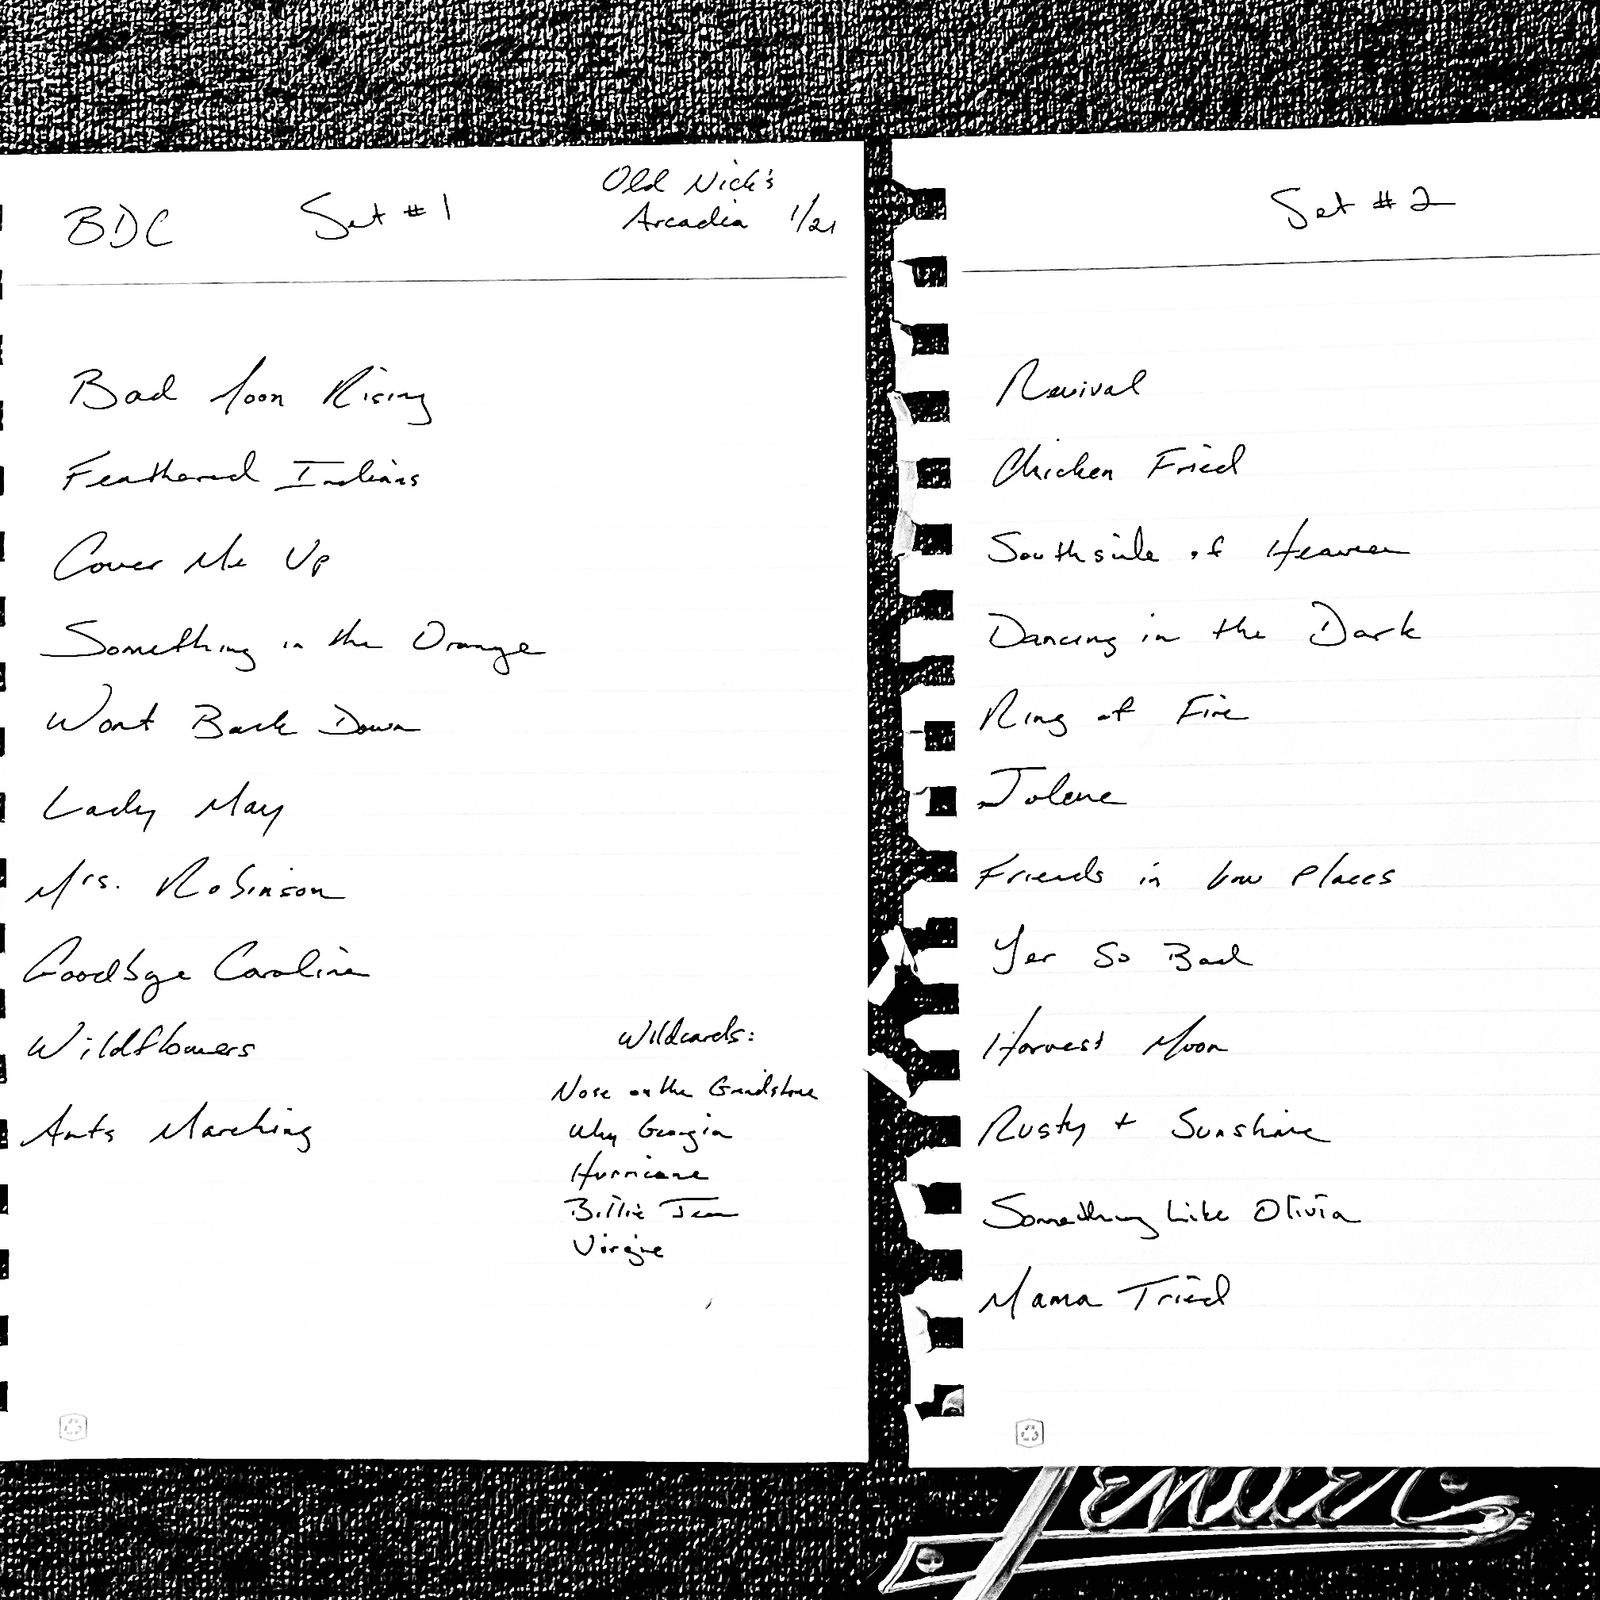 BDC Set #1 Old Nick's
Arcadia 1/21
Bad Moon Rising
Feathered Indians
Cover Me Up
Something in the Orange
Wont Back Down
Lady May
Mrs. Robinson
Goodbye Caroline
Wildflowers
Ants Marching
Wildcards:
Nose on the Grindstone
Why Georgia
Hurricane
Billie Jean
Virgine
Set #2
Revival
Chicken Fried
Southside of Heaven
Dancing in the Dark
Ring of Fire
Jolene
Friends in Low Places
Yer So Bad
Harvest Moon
Rusty + Sunshine
Something Like Olivia
Mama Tried
Fender